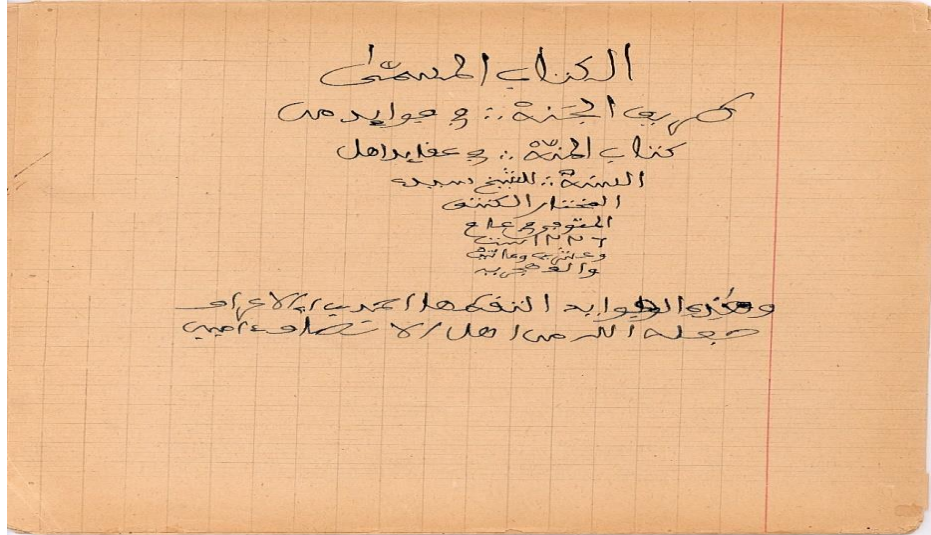 الكتاب المسمى
طريق الجنة في فوايد من
كتاب المنة في عقايد اهل
السنة للشيخ سيدي
المختار الكنتي
المتوفى في عام
١٢٢٦ ست
وعشرين ومائتين
والف هجرية
وهذه الفوايد التقطها احمد بن الاعراف
جعله الله من اهل الانصاف امين